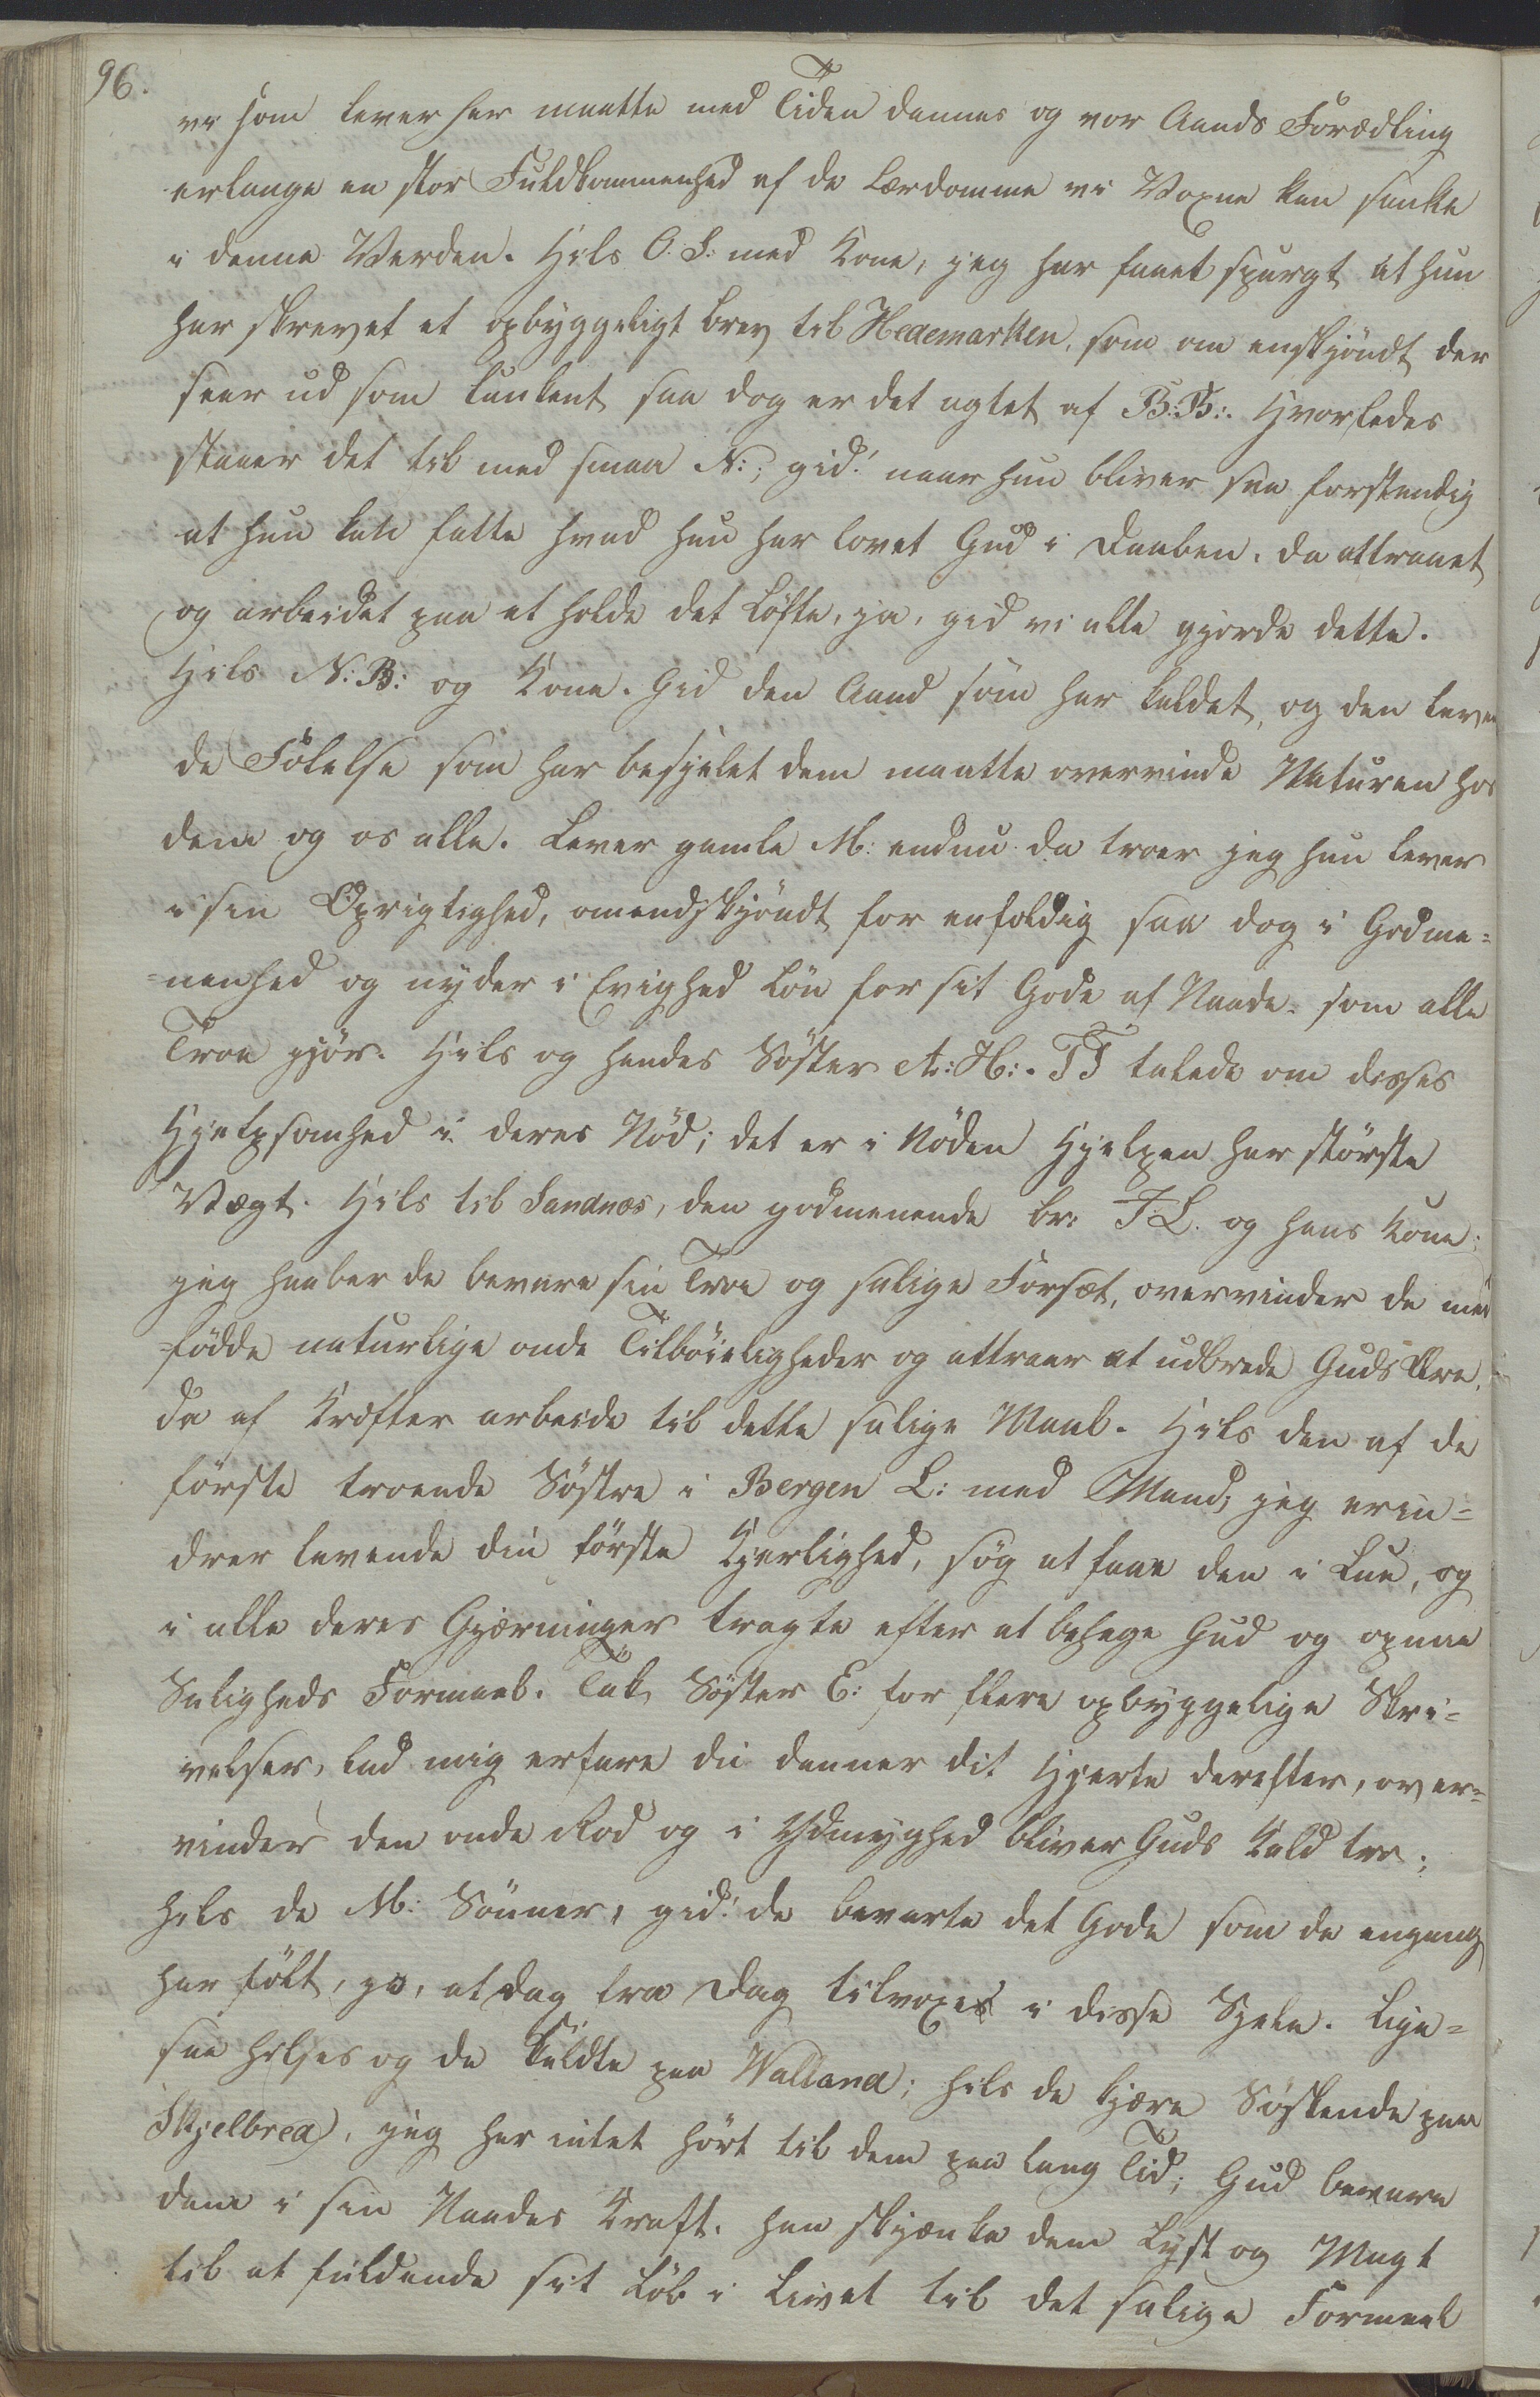 96.
vi som lever her maatte med Tiden dannes og vor Aands Forædling
erlange en stor Fuldkommenhed af de Lærdomme vi Voxne kan sanke
i denne Verden. Hils O. S: med Kone, jeg har faaet spurgt at hun
har skrevet et opbyggeligt brev til Hedemarken, som om enskjöndt der
seer ud som lunkent saa dog er det agtet af B: B:. Hvorledes
staaer det til med smaa N:; gid! naar hun bliver saa forstandig
at hun kan fatte hvad hun har lovet Gud i Daaben, da attraaet
og arbeidet paa at holde det Løfte, ja, gid vi alle gjorde dette.
Hils N: B: og Kone. Gid den Aand som har kaldet, og den leven
de Følelse som har besjelet dem maatte overvinde Naturen hos
dem og os alle. Lever gamle M: endnu da troer jeg hun lever
i sin Oprigtighed, omendskjöndt for enfoldig saa dog i Godme=
=nenhed og nyder i Evighed Løn for sit Gode af Naade, som alle
Troe gjør. Hils og hendes Søster A: H:. TT talede om disses
Hjelpsomhed i deres Nöd; det er i Nöden Hjelpen har störste
Vægt. Hils til Sandnæs, den godmenende br: J. L. og hans Kone;
jeg haaber de bevare sin Troe og salige Forsæt, overvinder de med
=fødde naturlige onde Tilböieligheder og attraar at udbrede Guds Ære,
da af Kræfter arbeide til dette salige Maal. Hils den af de
første troende Søstre i Bergen L: med Mand; jeg erin=
drer levende din første Kjerlighed, søg at faae den i Lue, og
i alle deres Gjerninger tragte efter at behage Gud og opnaae
Saligheds Formaal. Tak Søster E: for flere opbyggelige Skri=
velser, lad mig erfare du danner dit Hjerte derefter, over=
vinder den onde Rod og i Ydmyghed bliver Guds Kald tro;
hils de M: Sönner, gid! de bevarte det Gode som de engang
har følt, ja, at dag fra Dag tilvoxe i disse Sjele. Lige=
saa hilses og de kaldte paa Walland; hils de kjære Søskende paa
Skjelbred, jeg har intet hört til dem paa lang Tid; Gud bevare
dem i sin Naades Kraft. han skjænke dem Lyst og Magt
til at fuldende sit Løb i Livet til det salige Formaal